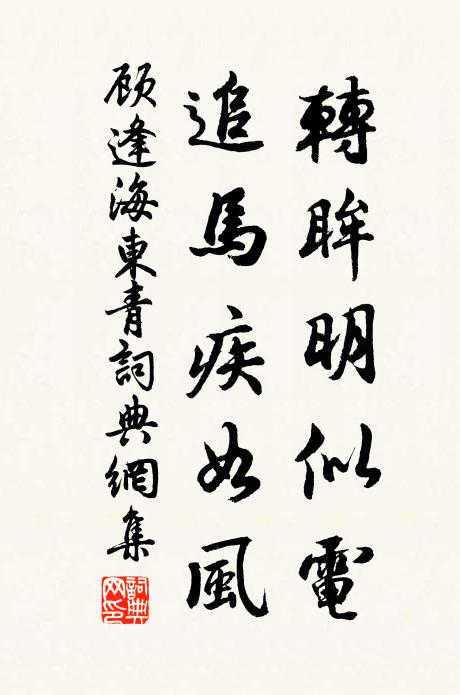 轉眸明似電
追馬疾如風
顧逢海東青詞典網集
詞典網印